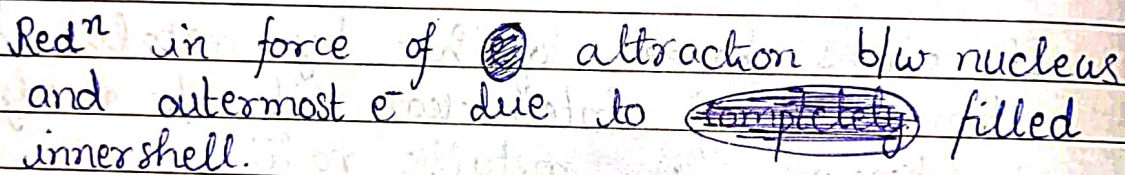 Redⁿ in force of attraction b/w nucleus
and outermost e⁻ due to completely filled
inner shell.